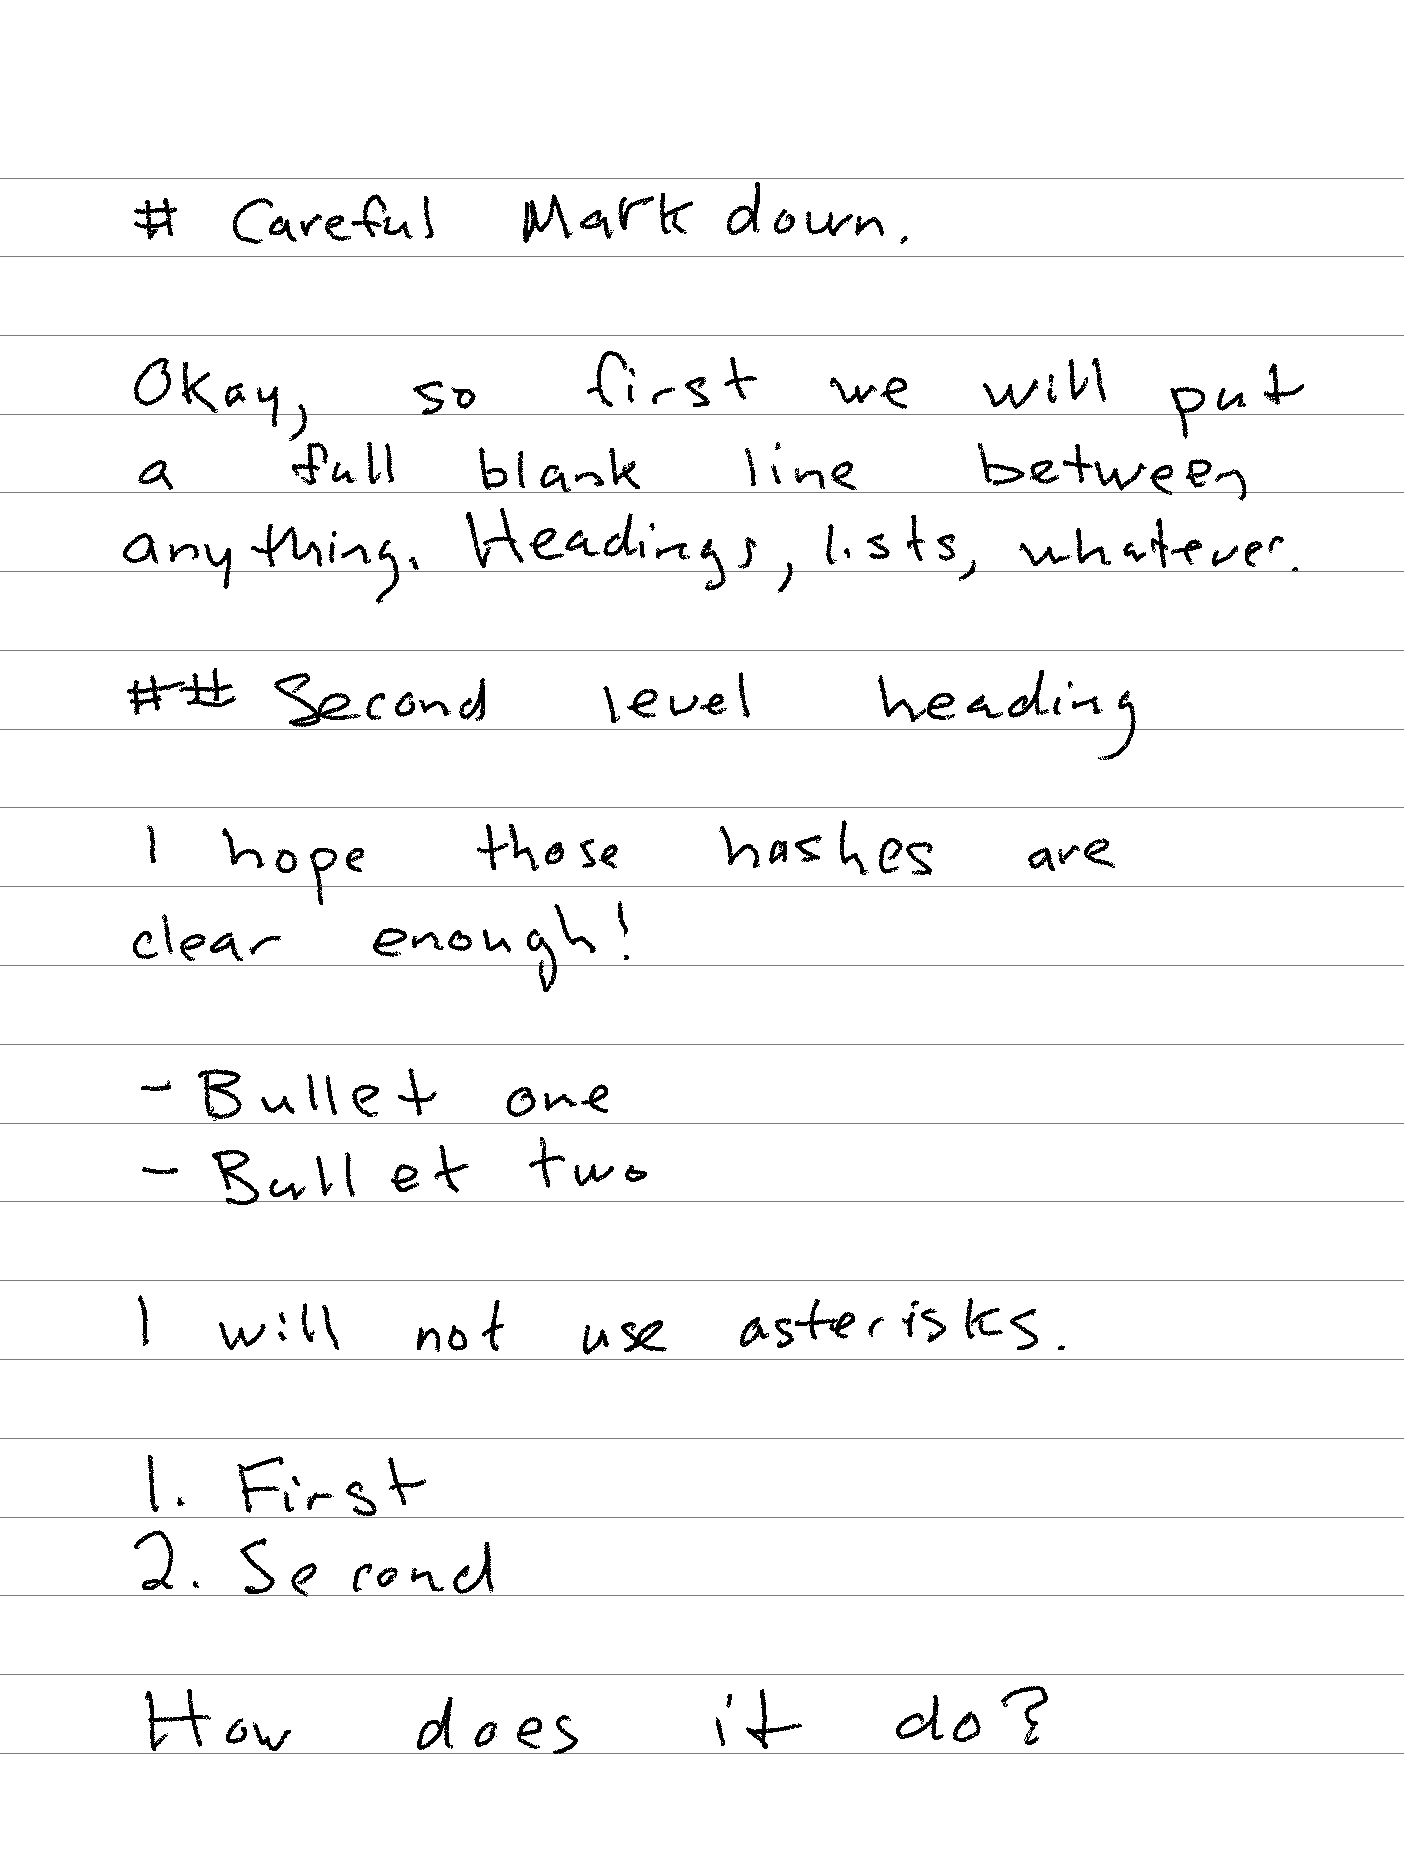 # Careful Markdown.
Okay, so first we will put
a full blank line between
anything. Headings, lists, whatever.
## Second level heading
I hope those hashes are
clear enough!
- Bullet one
- Bullet two
I will not use asterisks.
1. First
2. Second
How does it do?